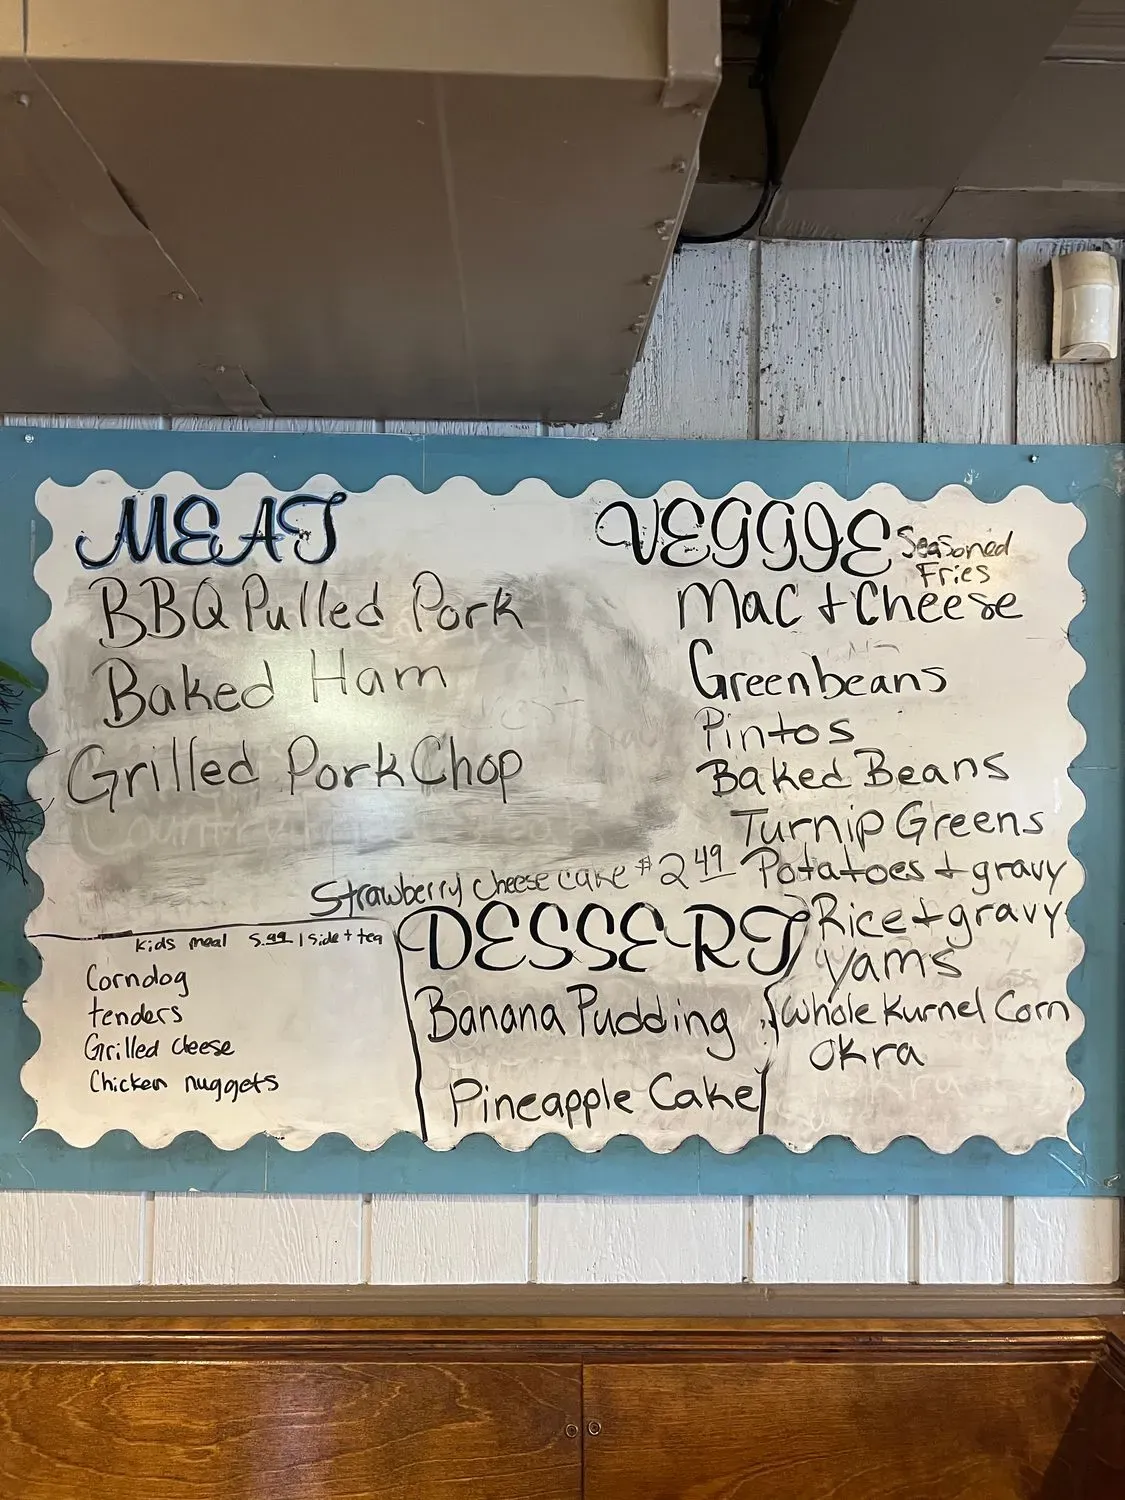 MEAT
BBQ Pulled Pork
Baked Ham
Grilled Pork Chop
Country
VEGGIE
Seasoned
Fries
Mac + Cheese
Greenbeans
Pintos
Baked Beans
Turnip Greens
Potatoes + gravy
Rice + gravy
Yams
Whole Kurnel Corn
Okra
Strawberry cheese cake $2 49
DESSERT
Banana Pudding
Pineapple Cake
Kids meal 5.99 1 side + tea
Corndog
tenders
Grilled cheese
Chicken nuggets